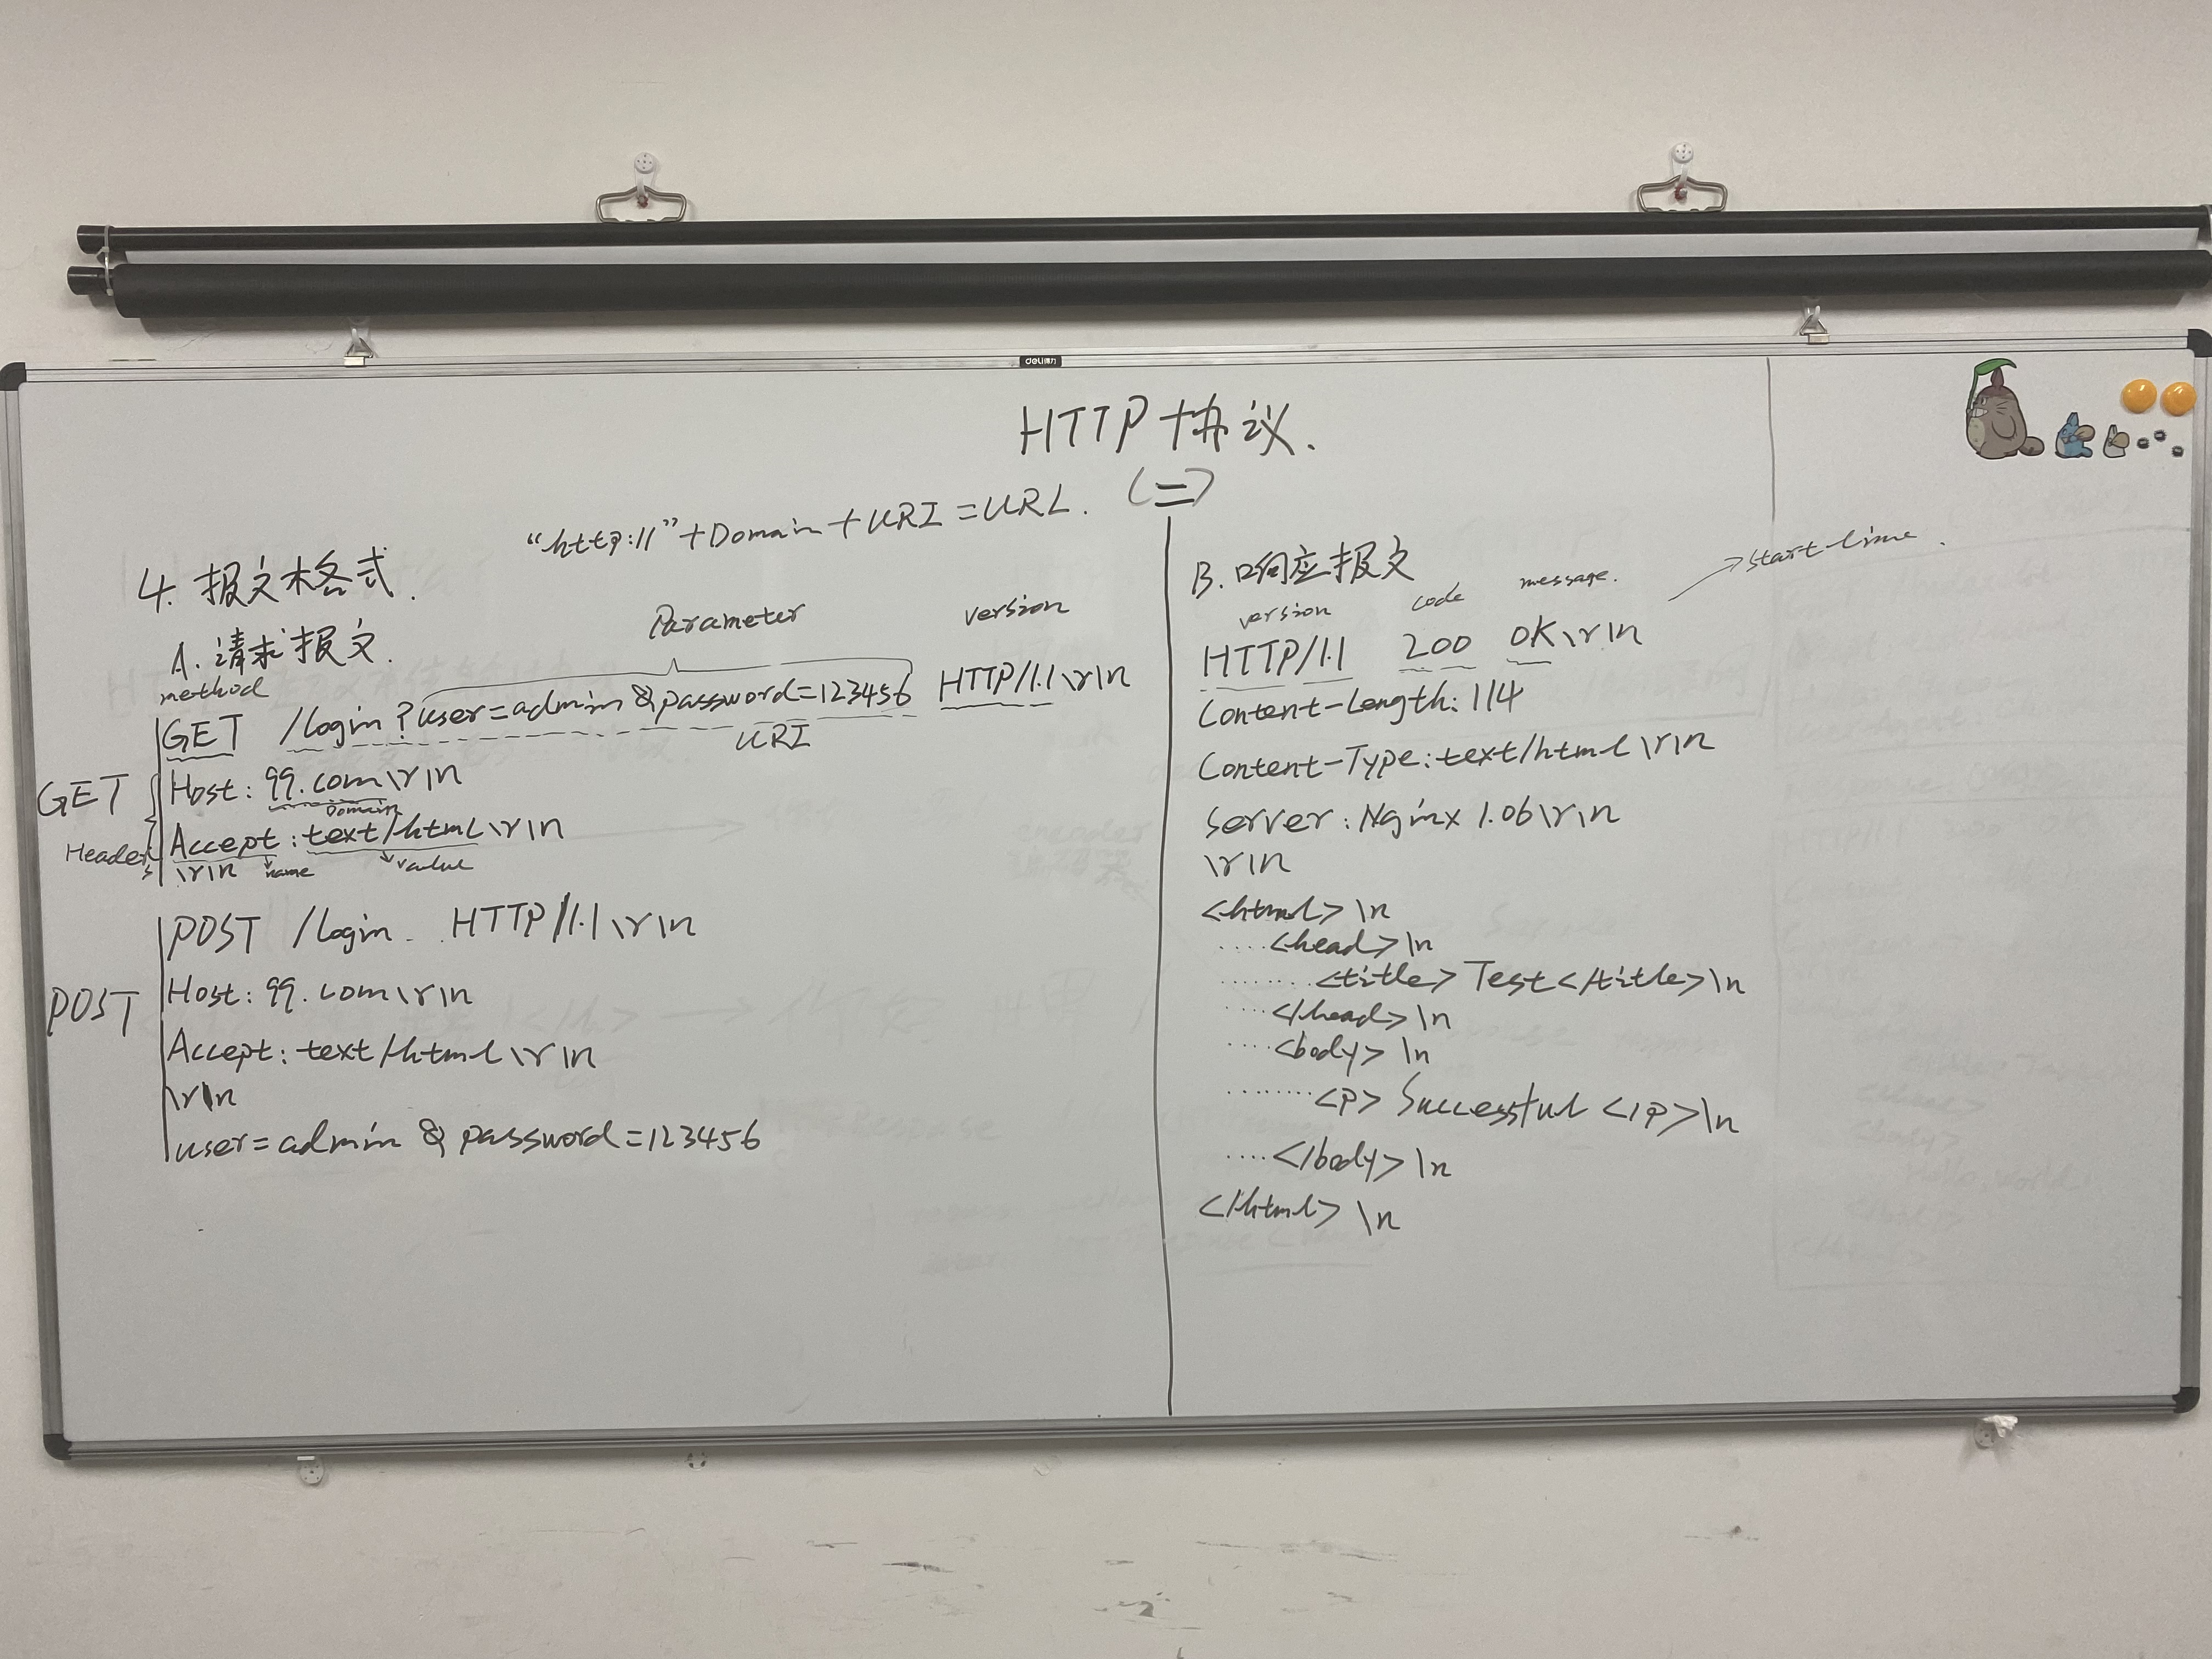 deli得力
HTTP协议.
(二)
"http://"+Domain+URI=URL.
4. 报文格式.
A. 请求报文.
method
Parameter
version
GET /login?user=admin&password=123456 HTTP/1.1\r\n
URI
GET
Host: 99.com\r\n
Domain
Headers
Accept: text/html\r\n
\r\n name value
POST
POST /login HTTP/1.1\r\n
Host: 99.com\r\n
Accept: text/html\r\n
\r\n
user=admin&password=123456
B. 响应报文
start-line.
version code message.
HTTP/1.1 200 OK\r\n
Content-Length: 114
Content-Type: text/html\r\n
Server: Nginx 1.06\r\n
\r\n
<html>\n
....<head>\n
........<title>Test</title>\n
....</head>\n
....<body>\n
........<p>Successful</p>\n
....</body>\n
</html>\n